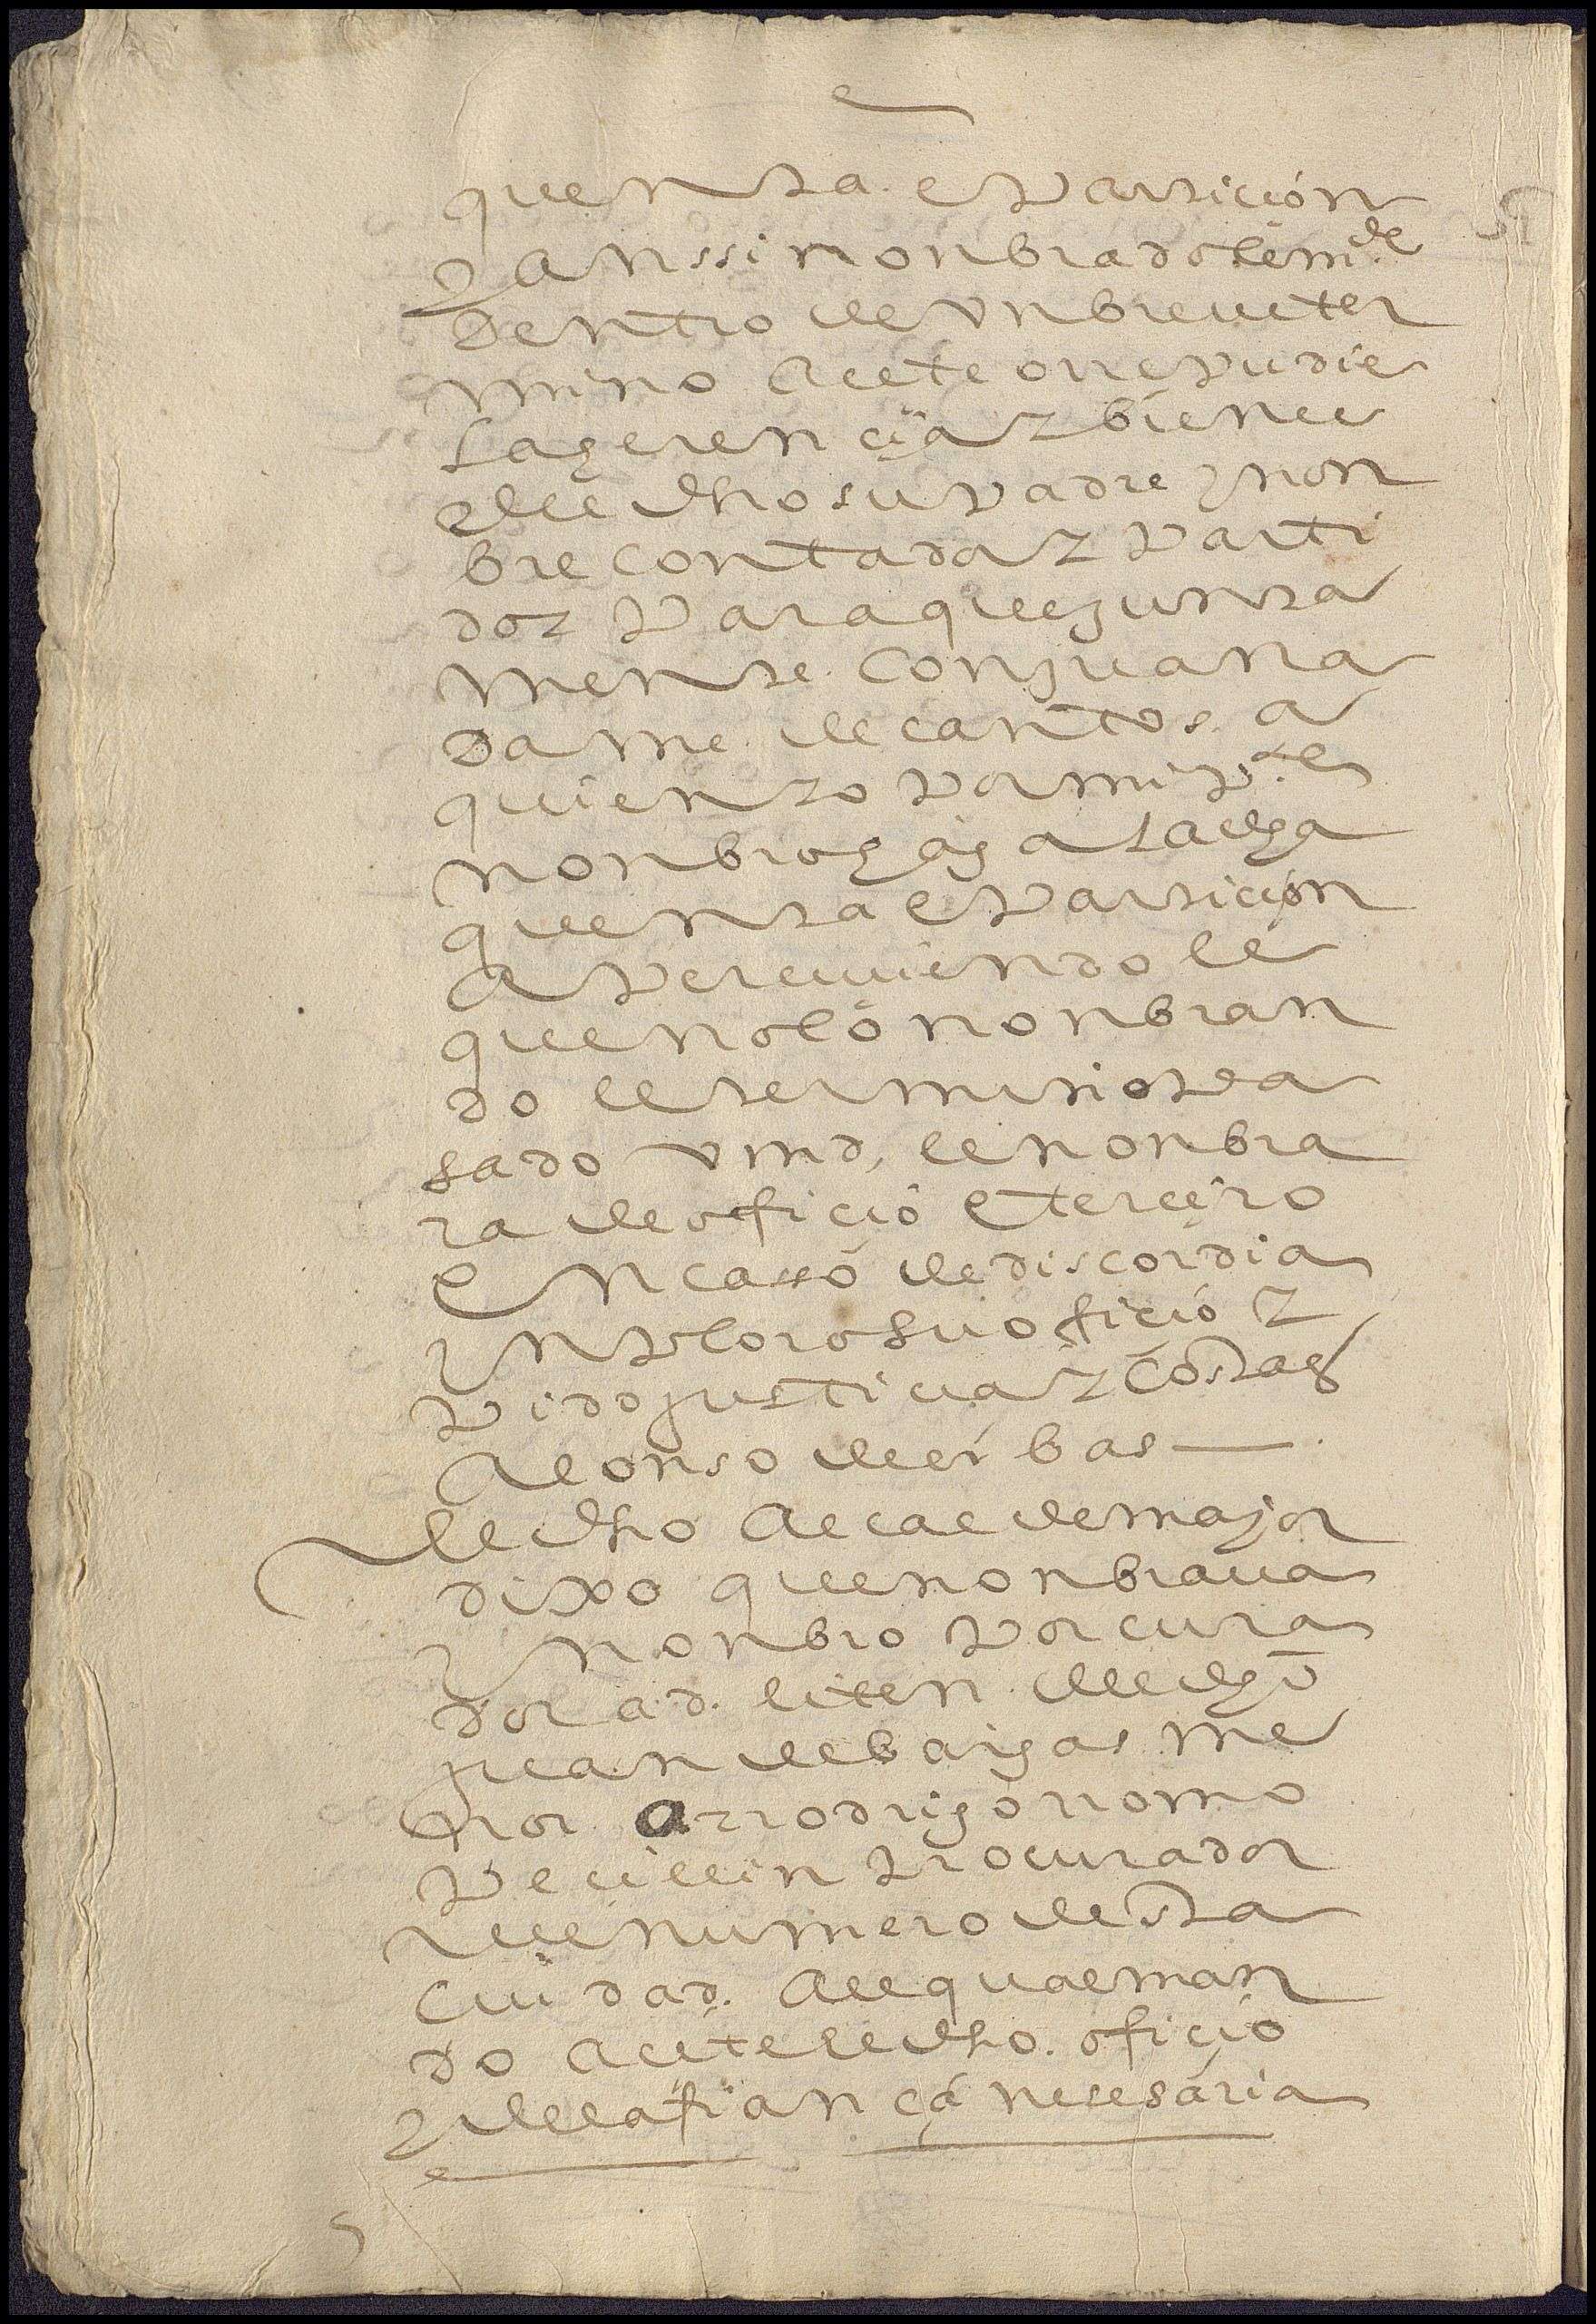 quenta e particion
y anssi nonbrado le mde
dentro de un breve ter
mino acete o rrepudie
la herencia y bienes
del dho su padre y non
bre contador y parti
dor para que junta
mente con juana
dame de cantos a
quien yo por mi pte
nonbro haga la dha
quenta e particion
aperciviendole
que no lo nonbran
do el termino pa
sado vmd, le nonbra
ra de oficio e tercero
en casso de discordia
ynploro su oficio y
pido justicia y costas
alonso de ribas
el dho alcalde mayor
dixo que nonbrava
y nonbro por cura
dor ad. liten del dho
juan de bargas me
nor a rrodrigo romo
pecellin procurador
del numero desta
ciudad. al qual man
do acete el dho. oficio
y de la fiança nesesaria